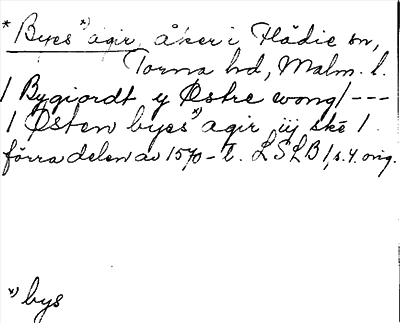 * Byes *) agir, åker i Flädie sn,
Torna hd, Malm. l.
/ Bygiordt y Østre wong / ---
/ Østen byes *) agir iij ske /.
förra delen av 1570-t. LSLB 1, s. 4. orig.
*) bys